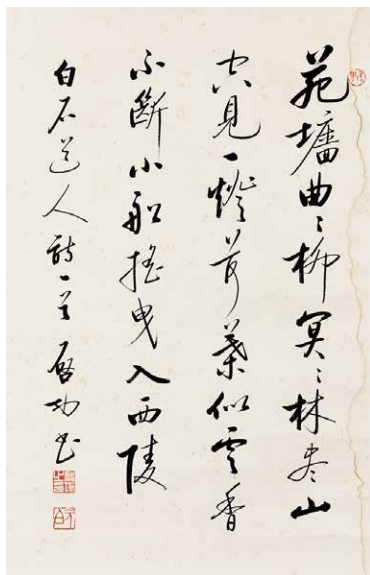 苑墻曲〻柳冥〻林山
空見一燈荷葉似雲香
不斷小船搖曳入西陵
白石道人詩一首 啓功書